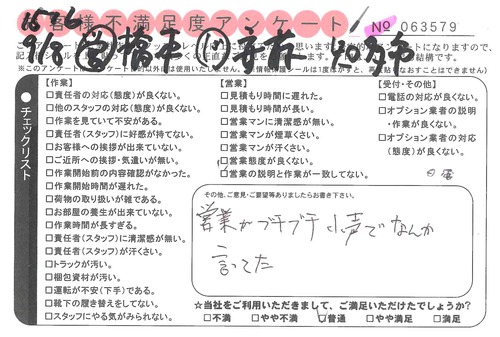 お客様不満足度アンケート
No 063579
チェックリスト
【作業】
□責任者の対応(態度)が良くない。
□他のスタッフの対応(態度)が良くない。
□作業を見ていて不安がある。
□責任者(スタッフ)に好感が持てない。
□お客様への挨拶が出来ていない。
□ご近所への挨拶・気遣いが無い。
□作業開始前の内容確認がなかった。
□作業開始時間が遅れた。
□荷物の取り扱いが雑である。
□お部屋の養生が出来ていない。
□作業時間が長すぎる。
□責任者(スタッフ)に清潔感が無い。
□責任者(スタッフ)が汗くさい。
□トラックが汚い。
□梱包資材が汚い。
□運転が不安(下手)である。
□靴下の履き替えをしてない。
□スタッフにやる気がみられない。
【営業】
□見積もり時間に遅れた。
□見積もり時間が長い。
□営業マンに清潔感が無い。
□営業マンが煙草くさい。
□営業マンが汗くさい。
□営業態度が良くない。
□営業の説明と作業が一致してない。
【受付・その他】
□電話の対応が良くない。
□オプション業者の説明
・作業が良くない。
□オプション業者の対応
(態度)が良くない。
その他、ご意見・ご要望等ありましたらお書き下さい。
営業がブチブチ小声でなんか
言ってた
☆当社をご利用いただきまして、ご満足いただけたでしょうか?
□不満 □やや不満 □普通 □やや満足 □満足